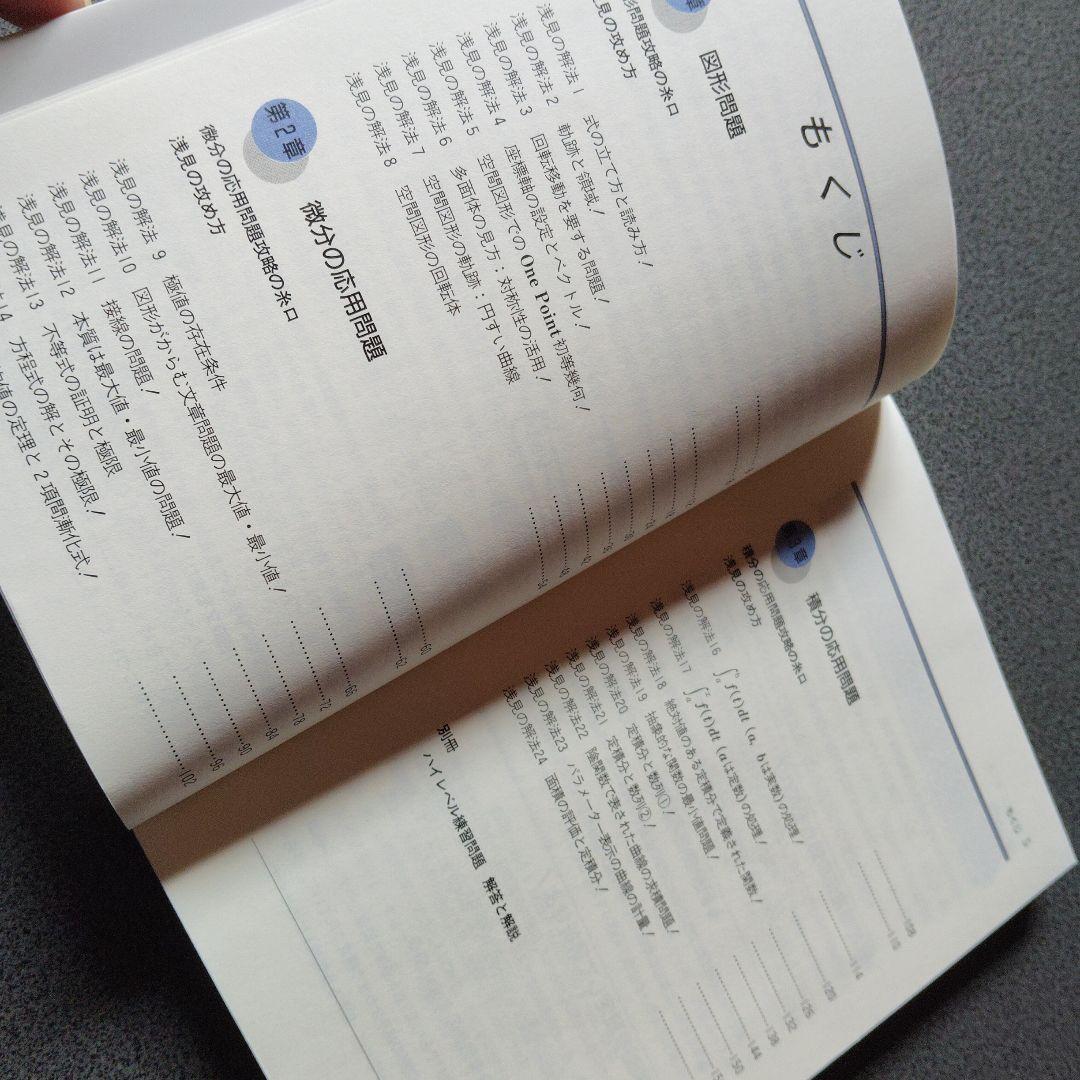 もくじ
章
図形問題
形問題攻略の糸口
見の攻め方
浅見の解法 1 式の立て方と読み方!
浅見の解法 2 軌跡と領域!
浅見の解法 3 回転移動を要する問題!
浅見の解法 4 座標軸の設定とベクトル!
浅見の解法 5 空間図形でのOne Point初等幾何!
浅見の解法 6 多面体の見方:対称性の活用!
浅見の解法 7 空間図形の軌跡:円すい曲線
浅見の解法 8 空間図形の回転体
第2章 微分の応用問題
微分の応用問題攻略の糸口 60
浅見の攻め方 62
浅見の解法 9 極値の存在条件 66
浅見の解法10 図形がからむ文章問題の最大値・最小値! 72
浅見の解法11 接線の問題! 78
浅見の解法12 本質は最大値・最小値の問題! 84
浅見の解法13 不等式の証明と極限 90
14 方程式の解とその極限! 96
値の定理と2項間漸化式! 102
章 積分の応用問題
積分の応用問題攻略の糸口
浅見の攻め方
浅見の解法16 f(t)dt (a, bは実数)の処理!
浅見の解法17 f(t)dt (aは定数)の処理!
浅見の解法18 絶対値のある定積分で定義された関数!
浅見の解法19 抽象的な関数の最小値問題!
浅見の解法20 定積分と数列①!
浅見の解法21 定積分と数列②!
浅見の解法22 陰関数で表された曲線の求積問題!
浅見の解法23 パラメーター表示の曲線の計量!
浅見の解法24 面積の評価と定積分!
別冊
ハイレベル練習問題 解答と解説